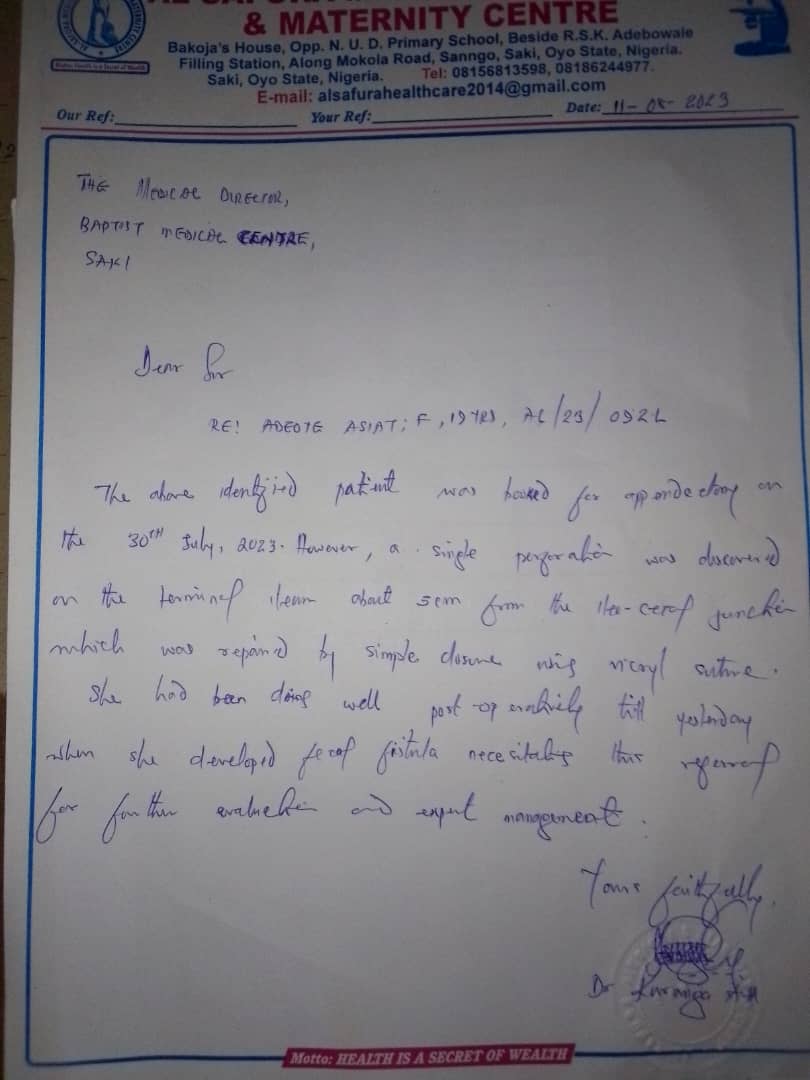 & MATERNITY CENTRE
Bakoja's House, Opp. N. U. D. Primary School, Beside R.S.K. Adebowale
Filling Station, Along Mokola Road, Sanngo, Saki, Oyo State, Nigeria.
Saki, Oyo State, Nigeria. Tel: 08156813598, 08186244977.
E-mail: alsafurahealthcare2014@gmail.com
Our Ref: Your Ref: Date: 11-08-2023
THE MEDICAL DIRECTOR,
BAPTIST MEDICAL CENTRE,
SAKI
Dear Sir
RE: ADEOTE ASIAT; F, 19 YRS, AL/23/
The above identified patient was booked for appendectomy on
the 30TH July, 2023. However, a single perforation was discovered
on the terminal ileum about 5cm from the ileo-cecal junction
which was repaired by simple closure using vicryl suture.
She had been doing well post-operatively till yesterday
when she developed fecal fistula necesitating this referral
for further evaluation and expert management.
Yours faithfully,
Dr
Motto: HEALTH IS A SECRET OF WEALTH